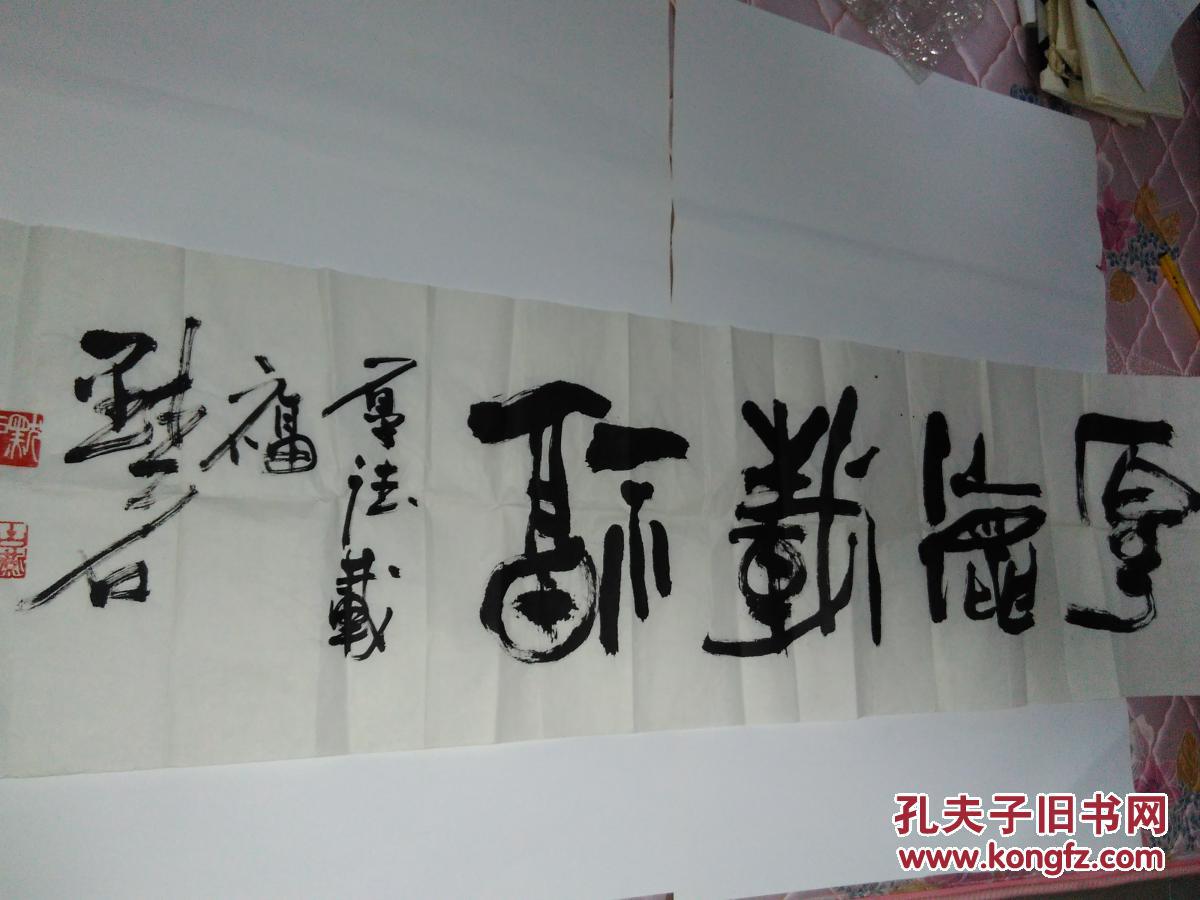 厚德載福
厚德載
福
野石
孔夫子旧书网
www.kongfz.com